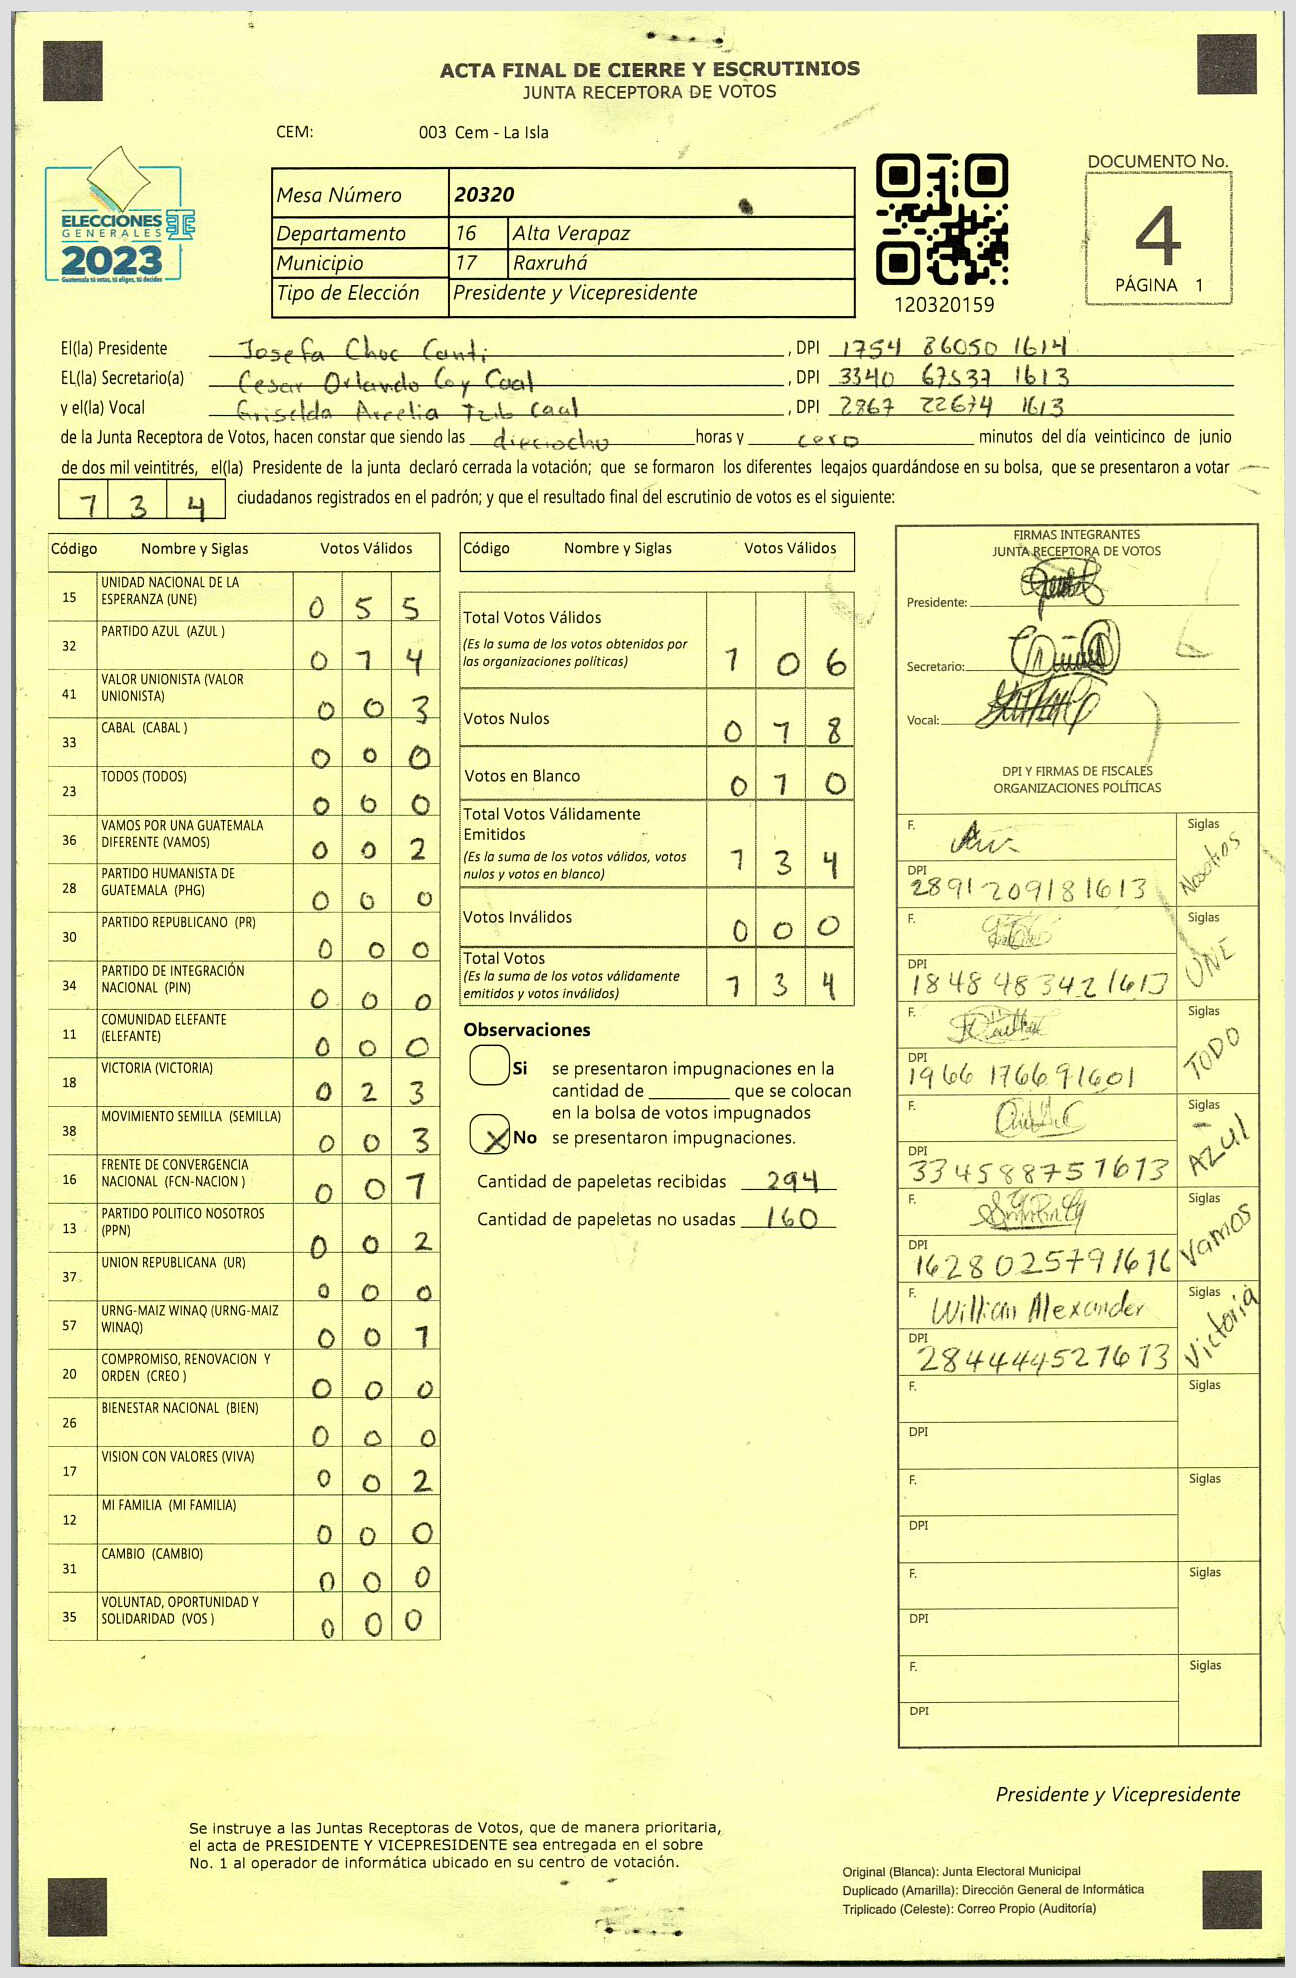 ACTA FINAL DE CIERRE Y ESCRUTINIOS
JUNTA RECEPTORA DE VOTOS
CEM: 003 Cem - La Isla
ELECCIONES
GENERALES
2023
Guatemala tú votas, tú eliges, tú decides
Mesa Número 20320
Departamento 16 Alta Verapaz
Municipio 17 Raxruhá
Tipo de Elección Presidente y Vicepresidente
120320159
DOCUMENTO No.
4
PÁGINA 1
El(la) Presidente Josefa Choc Canti, DPI 1754 86050 1614
EL(la) Secretario(a) Cesar Orlando Coy Caal, DPI 3340 67537 1613
y el(la) Vocal Griselda Arcelia Tzib Caal, DPI 2867 22674 1613
de la Junta Receptora de Votos, hacen constar que siendo las dieciocho horas y cero minutos del día veinticinco de junio
de dos mil veintitrés, el(la) Presidente de la junta declaró cerrada la votación; que se formaron los diferentes legajos guardándose en su bolsa, que se presentaron a votar
1 3 4 ciudadanos registrados en el padrón; y que el resultado final del escrutinio de votos es el siguiente:
Código Nombre y Siglas Votos Válidos
15 UNIDAD NACIONAL DE LA
ESPERANZA (UNE) 0 5 5
32 PARTIDO AZUL (AZUL ) 0 1 4
41 VALOR UNIONISTA (VALOR
UNIONISTA) 0 0 3
33 CABAL (CABAL ) 0 0 0
23 TODOS (TODOS) 0 0 0
36 VAMOS POR UNA GUATEMALA
DIFERENTE (VAMOS) 0 0 2
28 PARTIDO HUMANISTA DE
GUATEMALA (PHG) 0 0 0
30 PARTIDO REPUBLICANO (PR) 0 0 0
34 PARTIDO DE INTEGRACIÓN
NACIONAL (PIN) 0 0 0
11 COMUNIDAD ELEFANTE
(ELEFANTE) 0 0 0
18 VICTORIA (VICTORIA) 0 2 3
38 MOVIMIENTO SEMILLA (SEMILLA) 0 0 3
16 FRENTE DE CONVERGENCIA
NACIONAL (FCN-NACION ) 0 0 1
13 PARTIDO POLITICO NOSOTROS
(PPN) 0 0 2
37 UNION REPUBLICANA (UR) 0 0 0
57 URNG-MAIZ WINAQ (URNG-MAIZ
WINAQ) 0 0 1
20 COMPROMISO, RENOVACION Y
ORDEN (CREO ) 0 0 0
26 BIENESTAR NACIONAL (BIEN) 0 0 0
17 VISION CON VALORES (VIVA) 0 0 2
12 MI FAMILIA (MI FAMILIA) 0 0 0
31 CAMBIO (CAMBIO) 0 0 0
35 VOLUNTAD, OPORTUNIDAD Y
SOLIDARIDAD (VOS ) 0 0 0
Código Nombre y Siglas Votos Válidos
Total Votos Válidos
(Es la suma de los votos obtenidos por
las organizaciones políticas) 1 0 6
Votos Nulos 0 1 8
Votos en Blanco 0 1 0
Total Votos Válidamente
Emitidos
(Es la suma de los votos válidos, votos
nulos y votos en blanco) 1 3 4
Votos Inválidos 0 0 0
Total Votos
(Es la suma de los votos válidamente
emitidos y votos inválidos) 1 3 4
Observaciones
Si se presentaron impugnaciones en la
cantidad de ________ que se colocan
en la bolsa de votos impugnados
X No se presentaron impugnaciones.
Cantidad de papeletas recibidas 294
Cantidad de papeletas no usadas 160
FIRMAS INTEGRANTES
JUNTA RECEPTORA DE VOTOS
Presidente:
Secretario:
Vocal:
DPI Y FIRMAS DE FISCALES
ORGANIZACIONES POLÍTICAS
F. Siglas Nosotros
DPI 2891209181613
F. Siglas UNE
DPI 1848483421613
F. Siglas TODO
DPI 1966176691601
F. Siglas AZUL
DPI 334588751613
F. Siglas Vamos
DPI 1628025791616
F. Willian Alexander Siglas Victoria
DPI 284444521613
F. Siglas
DPI
F. Siglas
DPI
F. Siglas
DPI
F. Siglas
DPI
Presidente y Vicepresidente
Se instruye a las Juntas Receptoras de Votos, que de manera prioritaria,
el acta de PRESIDENTE Y VICEPRESIDENTE sea entregada en el sobre
No. 1 al operador de informática ubicado en su centro de votación.
Original (Blanca): Junta Electoral Municipal
Duplicado (Amarilla): Dirección General de Informática
Triplicado (Celeste): Correo Propio (Auditoría)